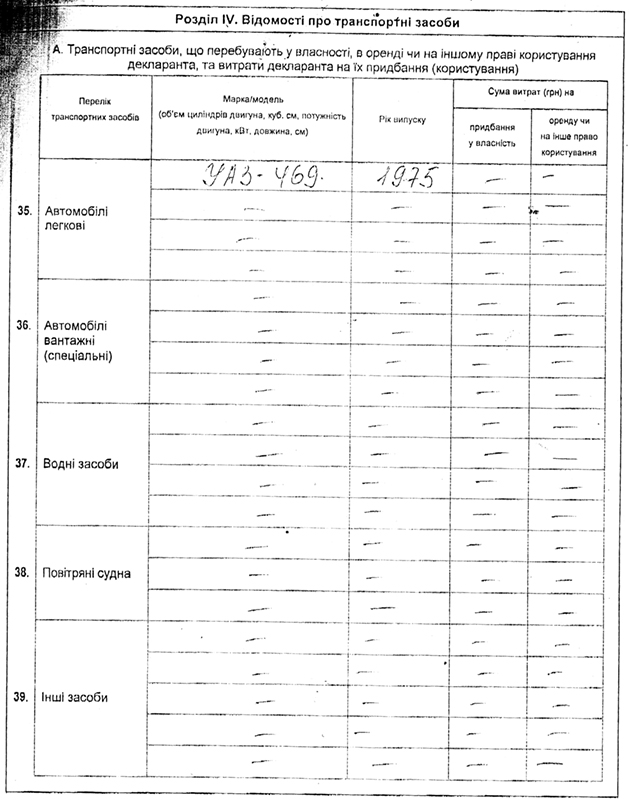 Розділ IV. Відомості про транспортні засоби
А. Транспортні засоби, що перебувають у власності, в оренді чи на іншому праві користування
декларанта, та витрати декларанта на їх придбання (користування)
Перелік
транспортних засобів
Марка/модель
(об'єм циліндрів двигуна, куб. см, потужність
двигуна, кВт, довжина, см)
Рік випуску
Сума витрат (грн) на
придбання
у власність
оренду чи
на інше право
користування
35. Автомобілі
легкові
УАЗ - 469. 1975 — —
— — — —
— — — —
— — — —
36. Автомобілі
вантажні
(спеціальні)
— — — —
— — — —
— — — —
— — — —
37. Водні засоби
— — — —
— — — —
— — — —
— — — —
38. Повітряні судна
— — — —
— — — —
— — — —
39. Інші засоби
— — — —
— — — —
— — — —
— — — —
— — — —